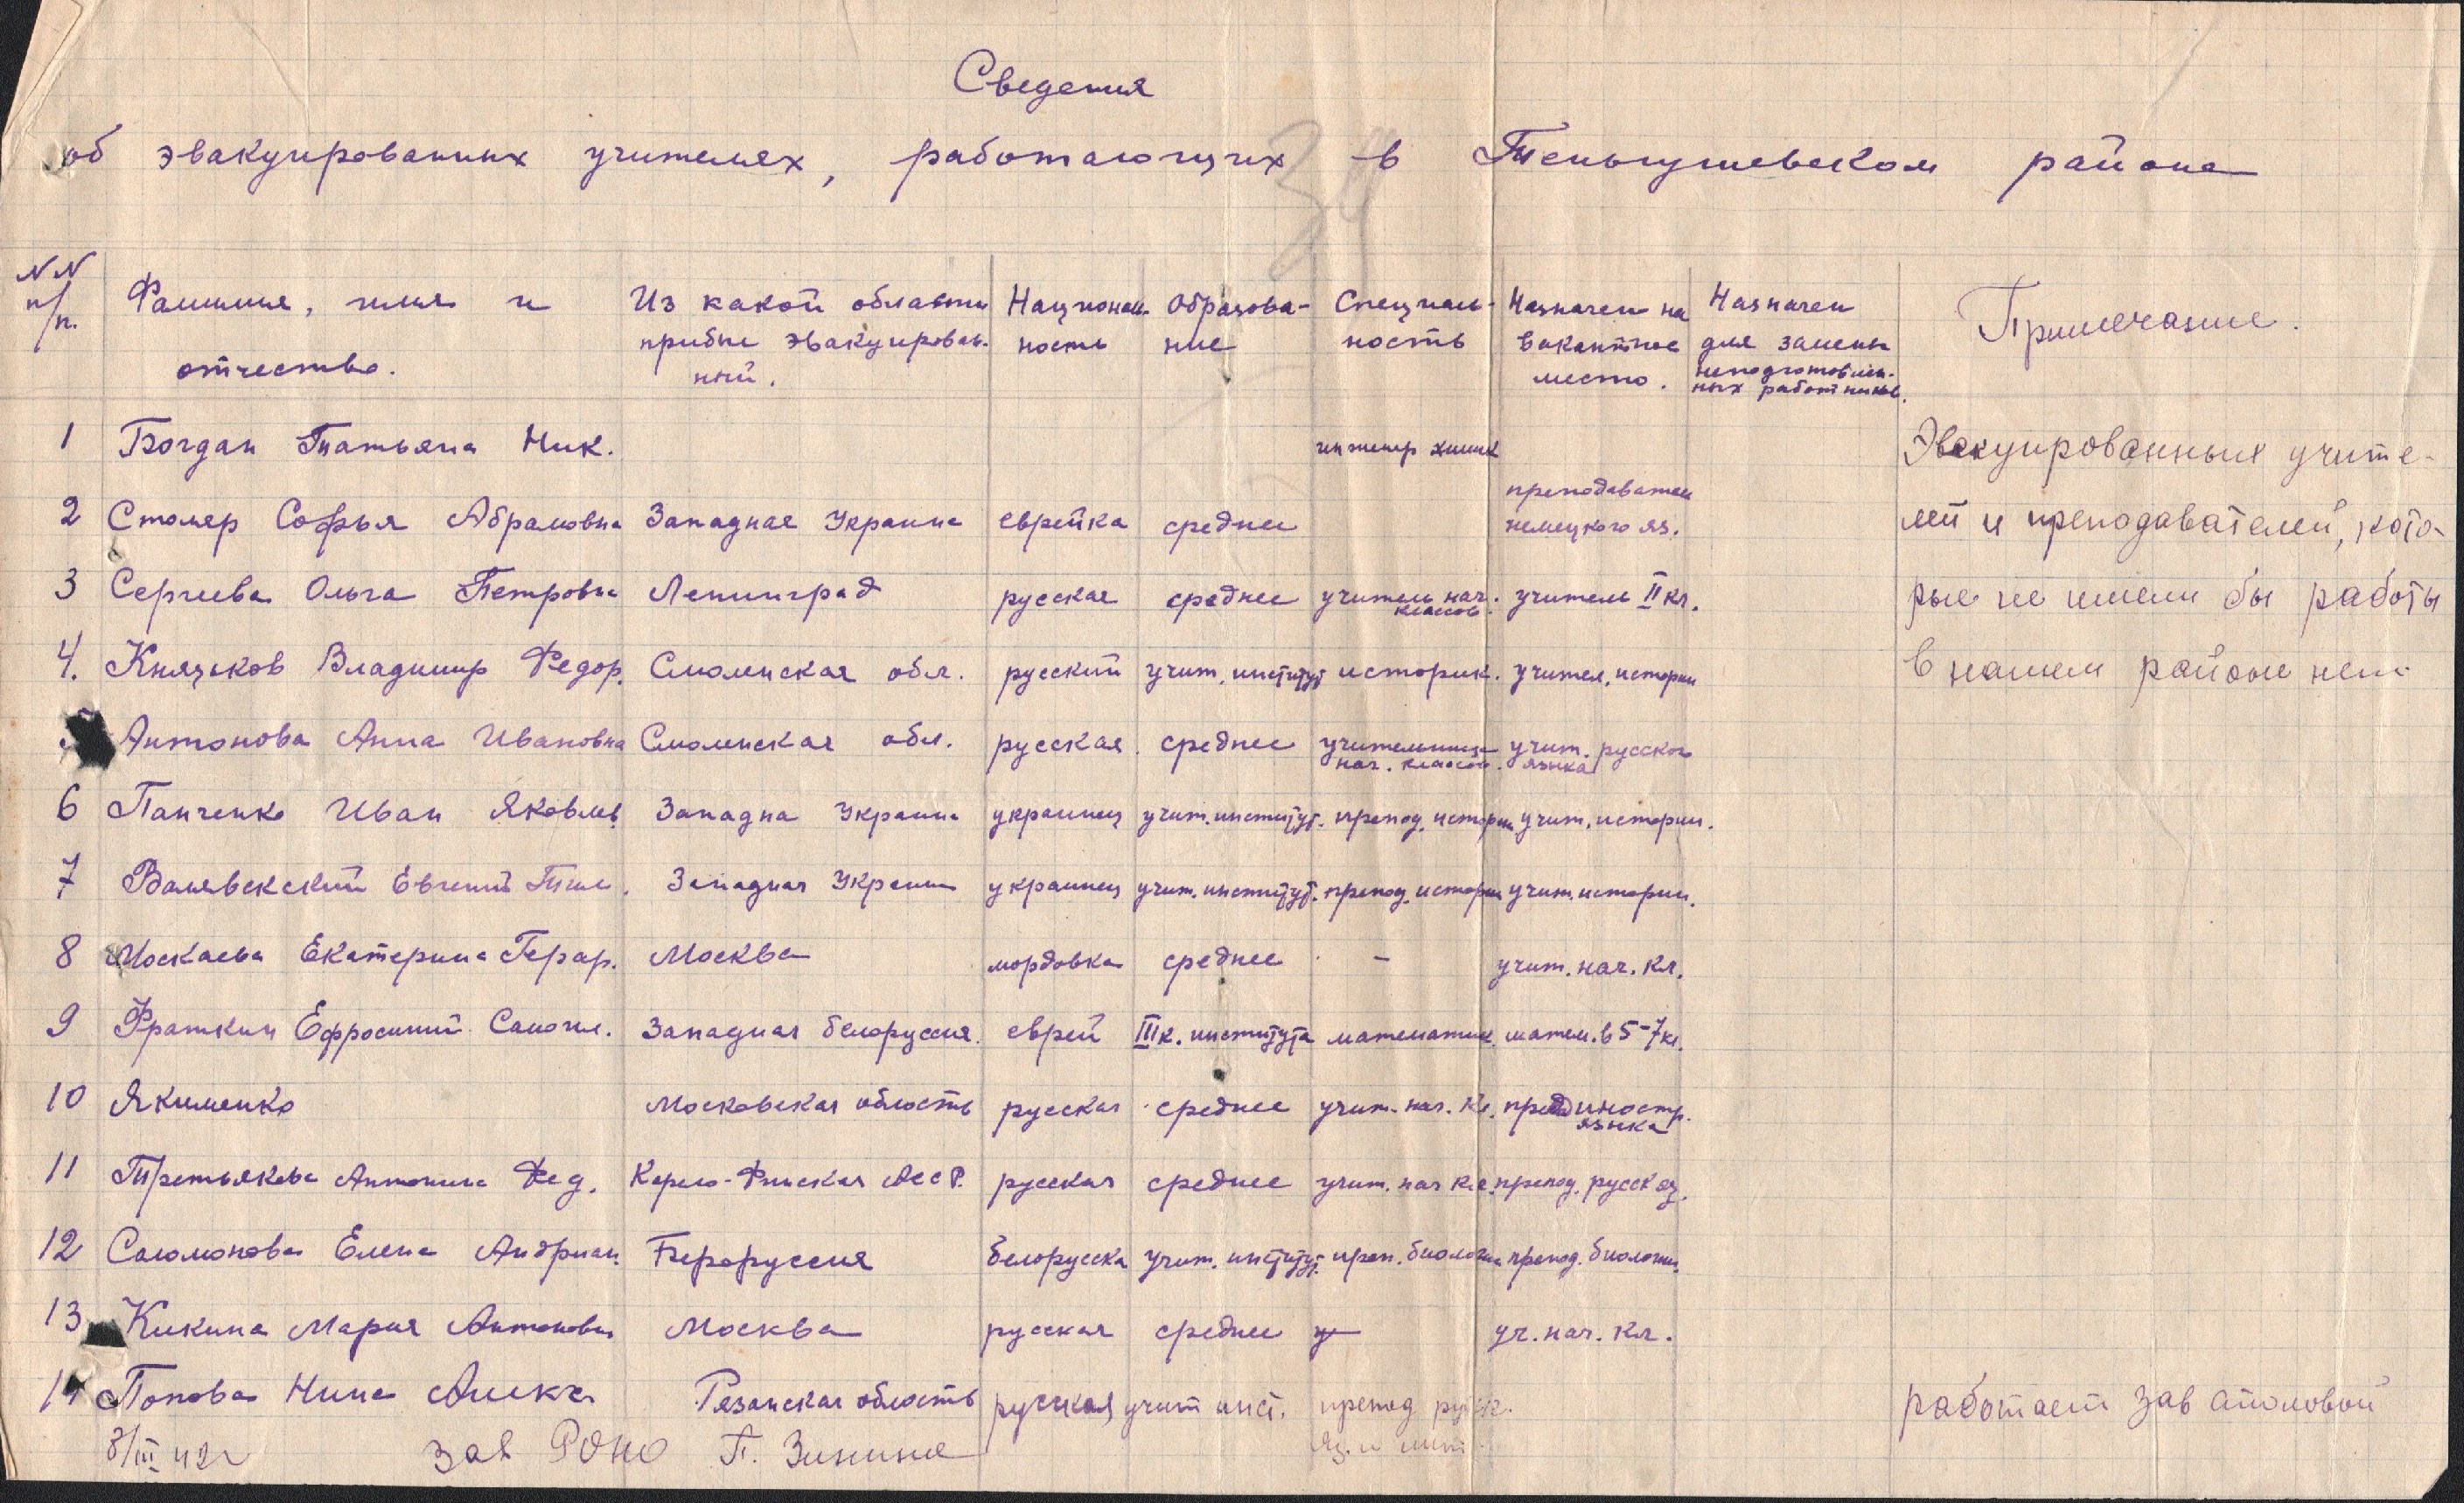 Сведения
об эвакуированных учителях, работающих в Теньгушевском районе
NN п/п. | Фамилия, имя и отчество. | Из какой области прибыл эвакуирован-ный. | Националь-ность | Образова-ние | Специаль-ность | Назначен на вакантное место. | Назначен для замены неподготовлен-ных работников. | Примечание.
1 Богдан Татьяна Ник. инженер химик
2 Столяр Софья Абрамовна Западная Украина еврейка среднее преподавател немецкого яз.
3 Сергеева Ольга Петровна Ленинград русская среднее учитель нач. классов. учитель II кл.
4. Князьков Владимир Федор. Смоленская обл. русский учит. институт историк. учител. истории
5 Антонова Анна Ивановна Смоленская обл. русская. среднее учительница нач. классов. учит. русского языка
6 Панченко Иван Яковлев. Западна Украина украинец учит. институт. препод. истории учит. истории.
7 Валявскский Евгений Тим. Западная Украина украинец учит. институт. препод. истории учит. истории.
8 Москаева Екатерина Герар. Москва мордовка среднее - учит. нач. кл.
9 Фраткин Ефросиний Самоил. Западная белоруссия. еврей III к. института математик. матем. в 5-7 кл.
10 Якименко Московская область русская среднее учит. нач. кл. препод иностр. языка
11 Третьякова Антонина Фед. Карело-Финская АССР. русская среднее учит. нач кл. препод. русск яз.
12 Саломонова Елена Андриан. Бероруссия белорусска учит. институт. преп. биологии препод. биологии.
13 Кикина Мария Антоновна Москва русская среднее уч. нач. кл.
14 Попова Нина Алекс. Рязанская область русская учит инст. препод русск. яз. и лит. работает зав столовой
Эвакуированных учите-
лей и преподавателей, кото-
рые не имели бы работы
в нашем районе нет.
8/III 42г зав РОНО П. Зинина
34